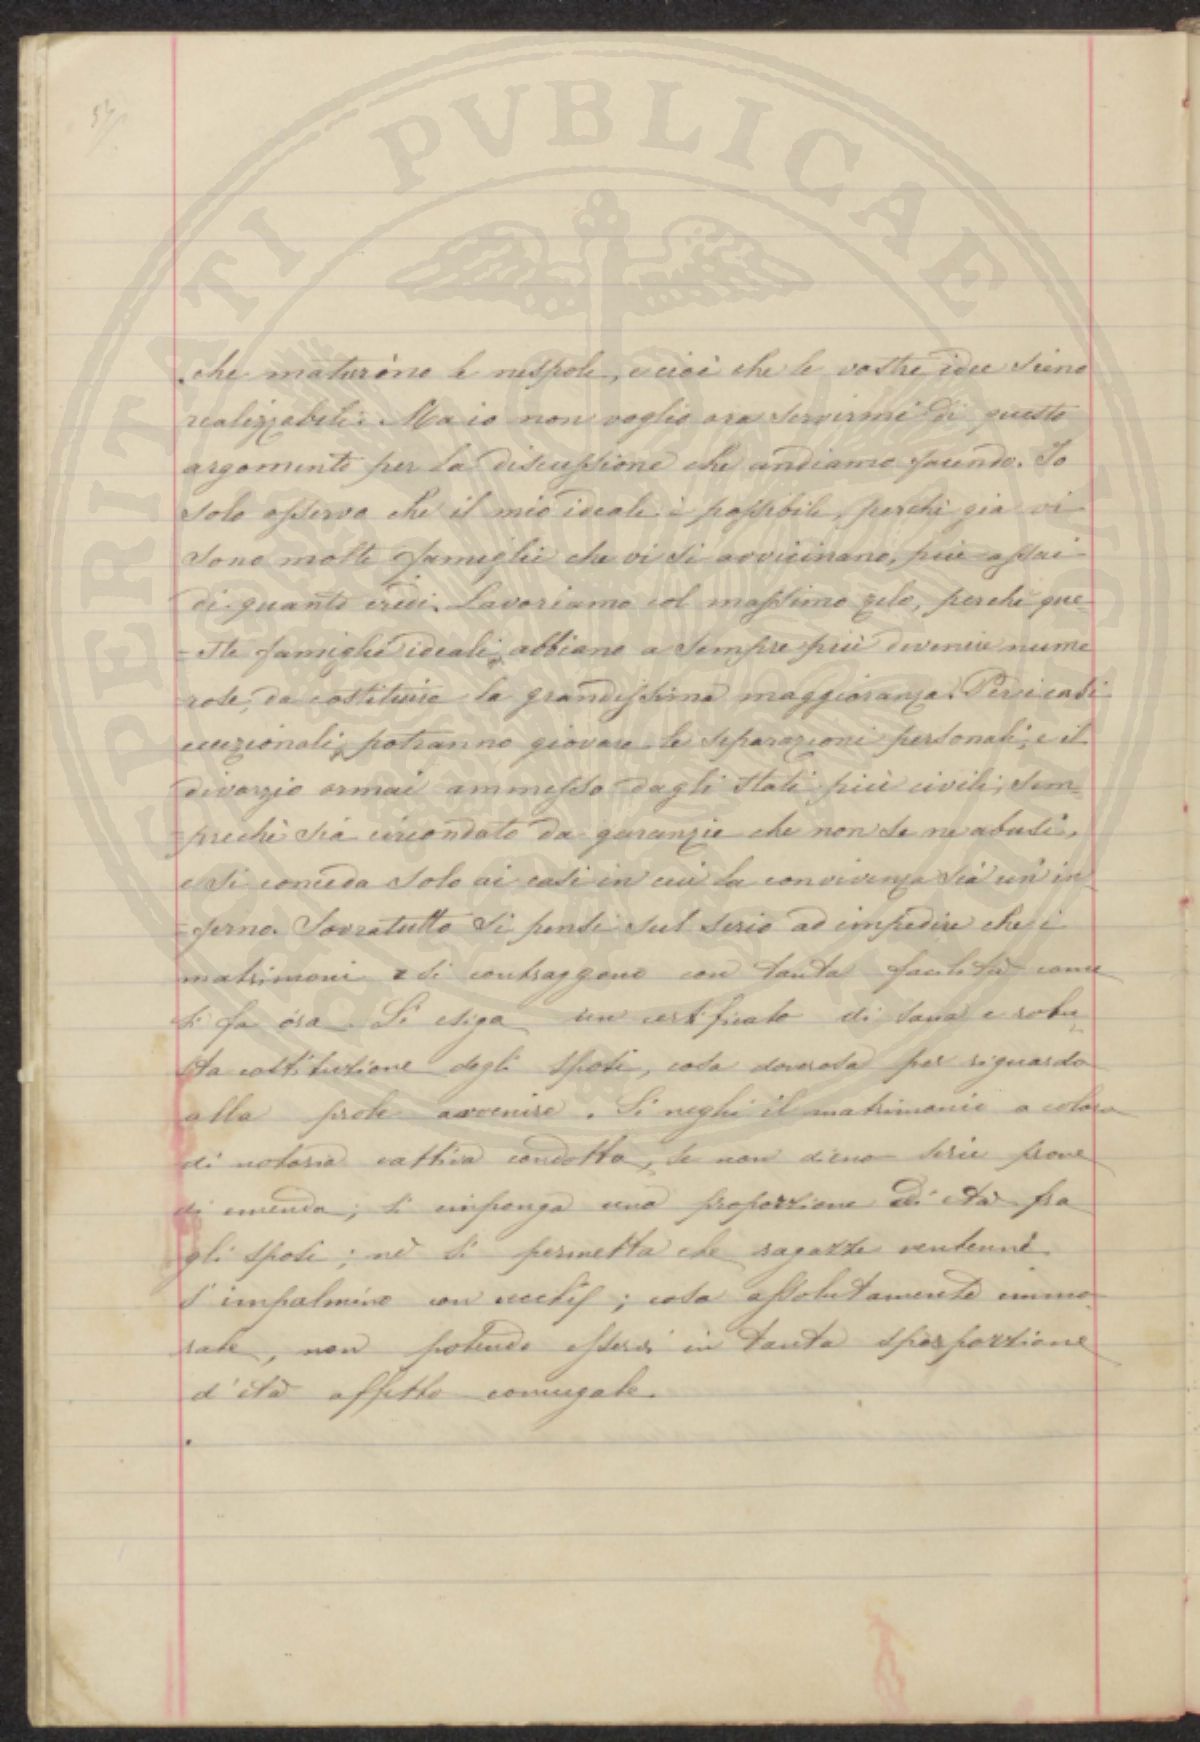 54
PERITATI PVBLICAE
che maturino le nespole, e cioè che le vostre idee sieno
realizzabili. Ma io non voglio ora servirmi di questo
argomento per la discussione che andiamo facendo. Io
solo osservo che il mio ideale è possibile, perchè già vi
sono molte famiglie che vi si avvicinano, più assai
di quanto credi. Lavoriamo col massimo zelo, perchè que-
-ste famiglie ideali, abbiano a sempre più divenire nume
rose, da costituire la grandissima maggioranza. Per i casi
eccezionali, potranno giovare le separazioni personali, e il
divorzio ormai ammesso dagli stati più civili; sem-
-prechè sia circondato da garanzie che non se ne abusi,
e si conceda solo ai casi in cui la convivenza sia un in
-ferno. Sovratutto si pensi sul serio ad impedire che i
matrimoni si contraggono con tanta facilità come
si fa ora. Si esiga un certificato di sana e robu-
sta costituzione degli sposi, cosa doverosa per riguardo
alla prole avvenire. Si neghi il matrimonio a coloro
di notoria cattiva condotta, se non dieno serie prove
di emenda; si imponga una proporzione di età fra
gli sposi; nè si permetta che ragazze ventenni
s'impalmino con vecchi; cosa assolutamente immo-
rale, non potendo esservi in tanta sproporzione
d'età affetto coniugale.